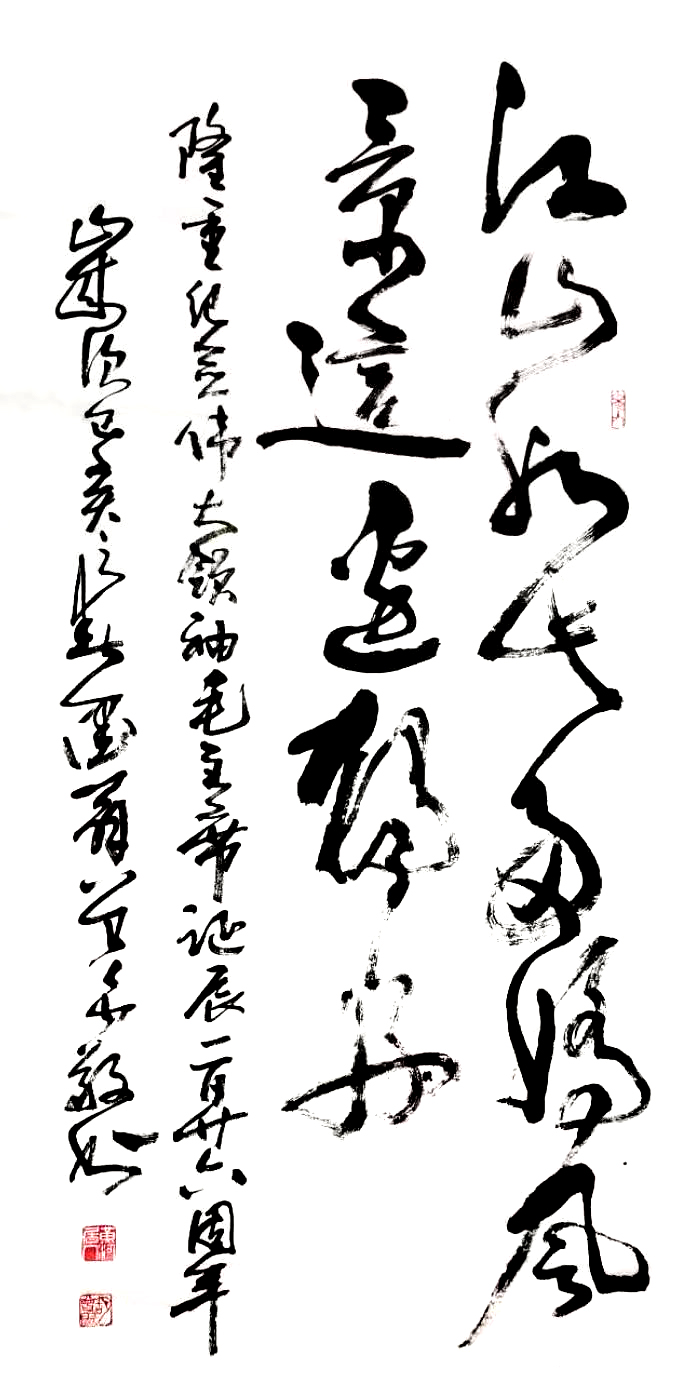 江山如此多娇风
景这边独好
隆重纪念伟大领袖毛主席诞辰一百廿六周年
岁次己亥